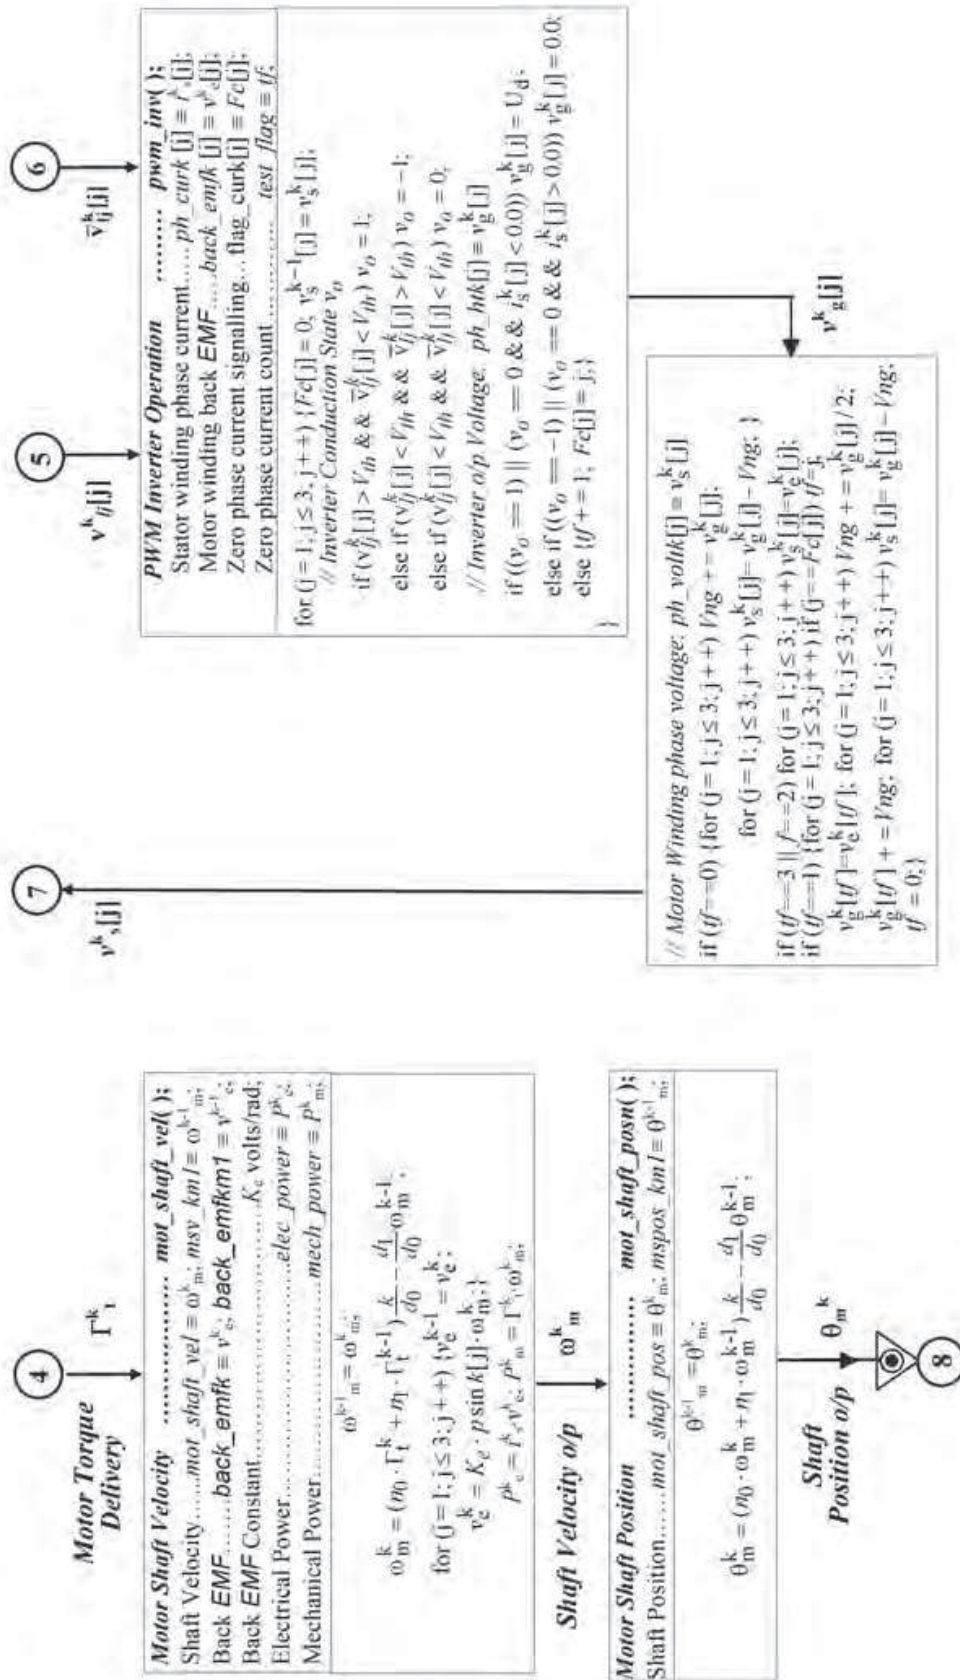 4
Motor Torque Delivery
Γ^k_t
Motor Shaft Velocity ............... mot_shaft_vel( );
Shaft Velocity......mot_shaft_vel ≡ ω^k_m; msv_km1 ≡ ω^k-1_m;
Back EMF......back_emfk ≡ v^k_e; back_emfkm1 ≡ v^k-1_e;
Back EMF Constant..............................K_e volts/rad;
Electrical Power..............elec_power ≡ P^k_e;
Mechanical Power..............mech_power ≡ P^k_m;
ω^k-1_m = ω^k_m;
ω^k_m = (n_0 · Γ^k_t + n_1 · Γ^k-1_t) k/d_0 − d_1/d_0 ω^k-1_m;
for (j = 1; j ≤ 3; j++) {v^k-1_e = v^k_e;
v^k_e = K_e · p sin k[j] · ω^k_m;}
P^k_e = i^k_s·v^k_e; P^k_m = Γ^k_t·ω^k_m;
Shaft Velocity o/p
ω^k_m
Motor Shaft Position ............... mot_shaft_posn( );
Shaft Position......mot_shaft_pos ≡ θ^k_m; mspos_km1 ≡ θ^k-1_m;
θ^k-1_m = θ^k_m;
θ^k_m = (n_0 · ω^k_m + n_1 · ω^k-1_m) k/d_0 − d_1/d_0 θ^k-1_m;
Shaft Position o/p
θ_m^k
8
7
v^k_s[j]
5
v^k_tj[j]
6
v̄^k_tj[j]
PWM Inverter Operation ......... pwm_inv( );
Stator winding phase current......ph_curk [j] ≡ i^k_s[j];
Motor winding back EMF......back_emfk [j] ≡ v^k_e[j];
Zero phase current signalling... flag_curk[j] ≡ Fc[j];
Zero phase current count .............. test_flag ≡ tf;
for (j = 1; j ≤ 3, j++) {Fc[j] = 0; v_s^k-1[j] = v_s^k[j];
// Inverter Conduction State v_o
if (v^k_lj[j] > V_th && v̄^k_lj[j] < V_th) v_o = 1;
else if (v^k_lj[j] < V_th && v̄^k_lj[j] > V_th) v_o = −1;
else if (v^k_lj[j] < V_th && v̄^k_lj[j] < V_th) v_o = 0;
// Inverter o/p Voltage; ph_htk[j] ≡ v_g^k[j]
if ((v_o == 1) || (v_o == 0 && i_s^k[j] < 0.0)) v_g^k[j] = U_d;
else if ((v_o == −1) || (v_o == 0 && i_s^k[j] > 0.0)) v_g^k[j] = 0.0;
else {tf += 1; Fc[j] = j;}
}
v^k_g[j]
// Motor Winding phase voltage; ph_voltk[j] ≡ v_s^k[j]
if (tf==0) {for (j = 1; j ≤ 3; j++) Vng += v_g^k[j];
for (j = 1; j ≤ 3; j++) v_s^k[j] = v_g^k[j] − Vng; }
if (tf==3 || f==2) for (j = 1; j ≤ 3; j++) v_s^k[j] = v_e^k[j];
if (tf==1) {for (j = 1; j ≤ 3; j++) if (j==Fc[j]) tf=j;
v_g^k[tf]=v_e^k[tf]; for (j = 1; j ≤ 3; j++) Vng += v_g^k[j]/2;
v_g^k[tf] += Vng; for (j = 1; j ≤ 3; j++) v_s^k[j] = v_g^k[j] − Vng;
tf = 0;}